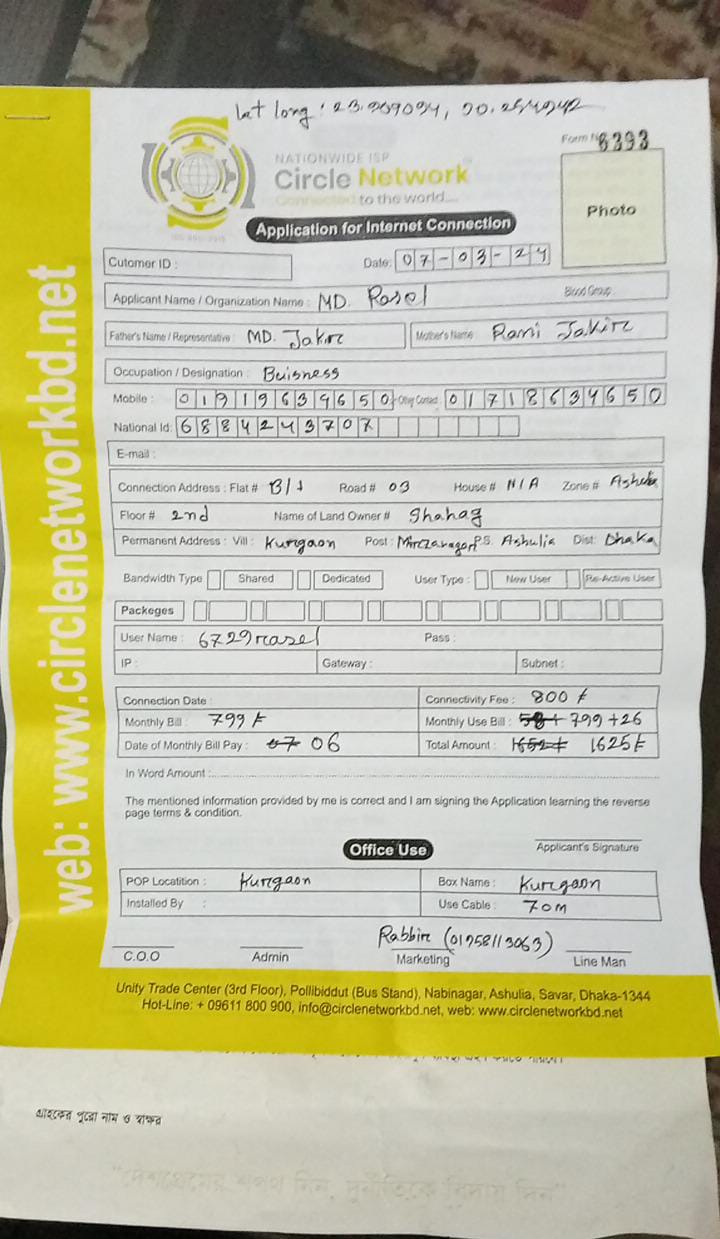 Lat long : 23.909094, 90.254942
Form No 6393
NATIONWIDE ISP
Circle Network
Connected to the world....
Photo
Application for Internet Connection
Cutomer ID :
Date: 07-03-24
Applicant Name / Organization Name : MD. Rasel Blood Group :
Father's Name / Representative : MD. Jakir Mother's Name : Rani Jakir
Occupation / Designation : Buisness
Mobile : 01919639650 Other Contact : 01718634650
National Id: 6884243707
E-mail :
Connection Address : Flat # B/1 Road # 03 House # N/A Zone # Ashulia
Floor # 2nd Name of Land Owner # Shahag
Permanent Address : Vill : Kurgaon Post : Mirzanagor P.S. Ashulia Dist: Dhaka
Bandwidth Type Shared Dedicated User Type : New User Re-Active User
Packeges
User Name : 6729rasel Pass :
IP : Gateway : Subnet :
Connection Date : Connectivity Fee : 800 ৳
Monthly Bill : 799 ৳ Monthly Use Bill : 799 +26
Date of Monthly Bill Pay : 07 06 Total Amount : 1652 ৳ 1625 ৳
In Word Amount :
The mentioned information provided by me is correct and I am signing the Application learning the reverse
page terms & condition.
Applicant's Signature
Office Use
POP Locatition : Kurgaon Box Name : Kurgaon
Installed By : Use Cable : 70M
Rabbir (01958113063)
C.O.O Admin Marketing Line Man
Unity Trade Center (3rd Floor), Pollibiddut (Bus Stand), Nabinagar, Ashulia, Savar, Dhaka-1344
Hot-Line: + 09611 800 900, info@circlenetworkbd.net, web: www.circlenetworkbd.net
web: www.circlenetworkbd.net
গ্রাহকের পুরো নাম ও স্বাক্ষর
"দেশপ্রেমের শপথ নিন, দুর্নীতিকে বিদায় দিন"